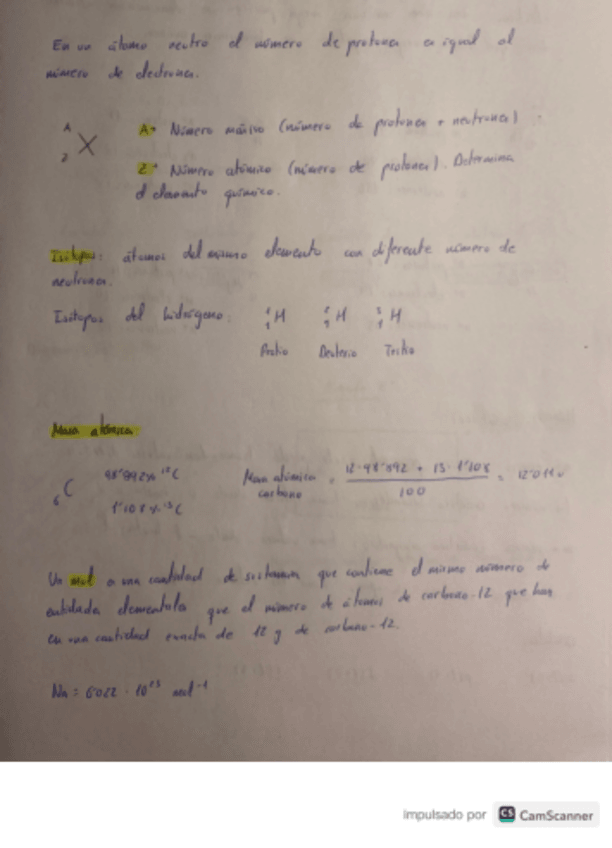 En un átomo neutro el número de protones es igual al
número de electrones.
A
Z X
A→ Número másico (número de protones + neutrones)
Z→ Número atómico (número de protones). Determina
el elemento químico.
Isótopos: átomos del mismo elemento con diferente número de
neutrones.
Isótopos del hidrógeno: ¹₁H ²₁H ³₁H
Protio Deuterio Tritio
Masa atómica:
₆C 98'892% ¹²C
1'108% ¹³C
Masa atómica carbono = (12·98'892 + 13·1'108) / 100 = 12'011 u
Un mol es una cantidad de sustancia que contiene el mismo número de
entidades elementales que el número de átomos de carbono-12 que hay
en una cantidad exacta de 12 g de carbono-12.
Na = 6022 · 10²³ mol⁻¹
impulsado por CS CamScanner